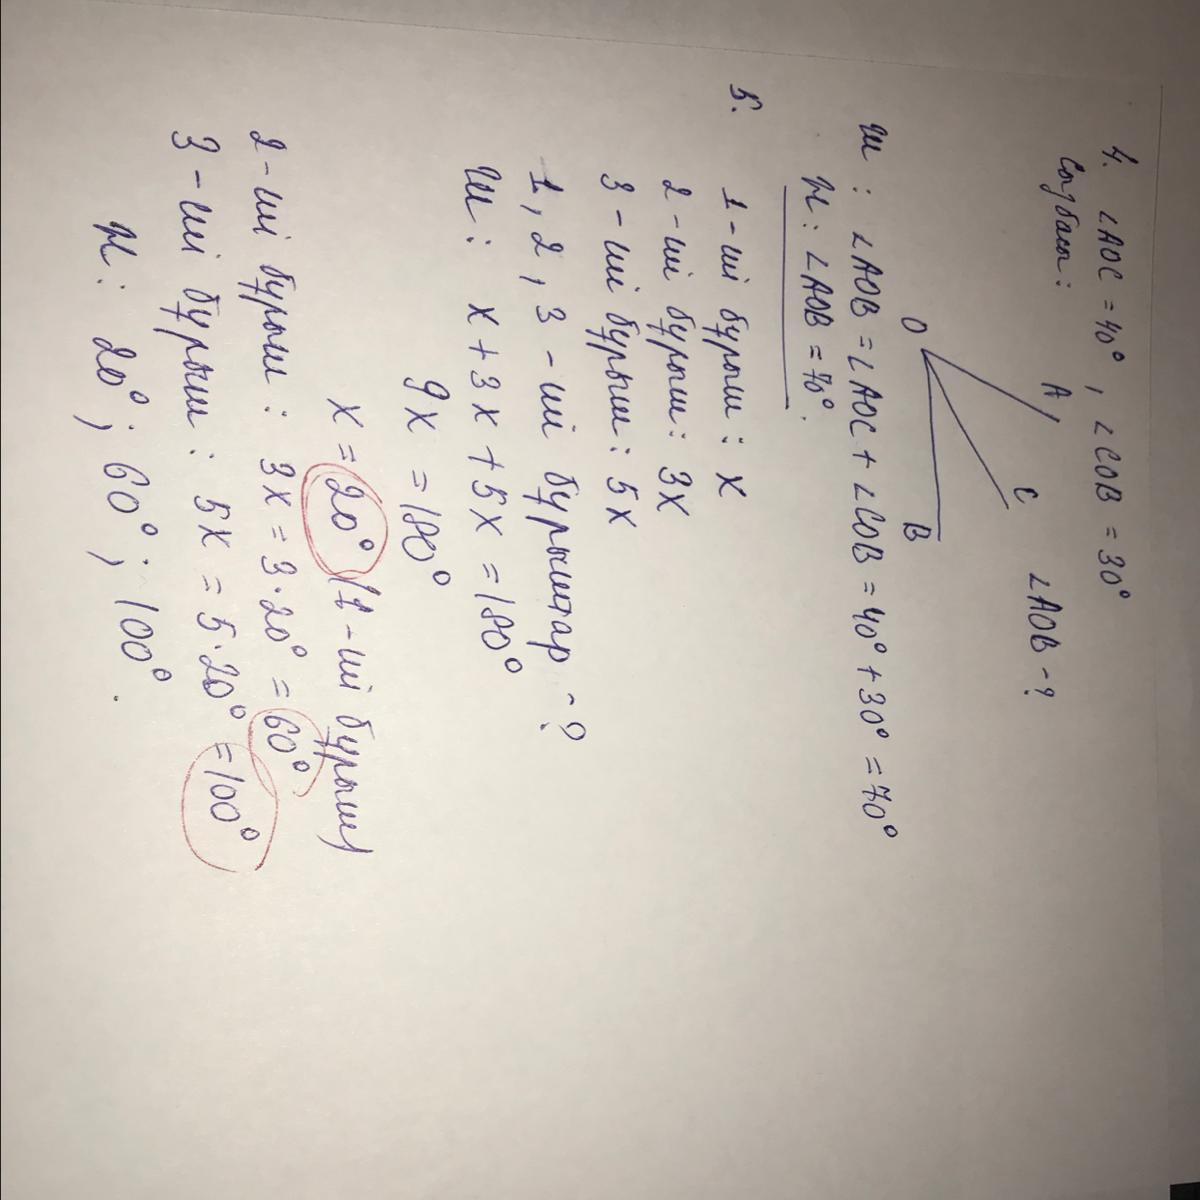 4. ∠AOC = 40°, ∠COB = 30° ∠AOB - ?
Сызбасы:
A
C
O
B
Ш: ∠AOB = ∠AOC + ∠COB = 40° + 30° = 70°
Ж: ∠AOB = 70°.
5. 1-ші бұрыш: x
2-ші бұрыш: 3x
3-ші бұрыш: 5x
1, 2, 3-ші бұрыштар - ?
Ш: x + 3x + 5x = 180°
9x = 180°
x = 20° (1-ші бұрыш)
2-ші бұрыш: 3x = 3·20° = 60°
3-ші бұрыш: 5x = 5·20° = 100°
Ж: 20°; 60°; 100°.